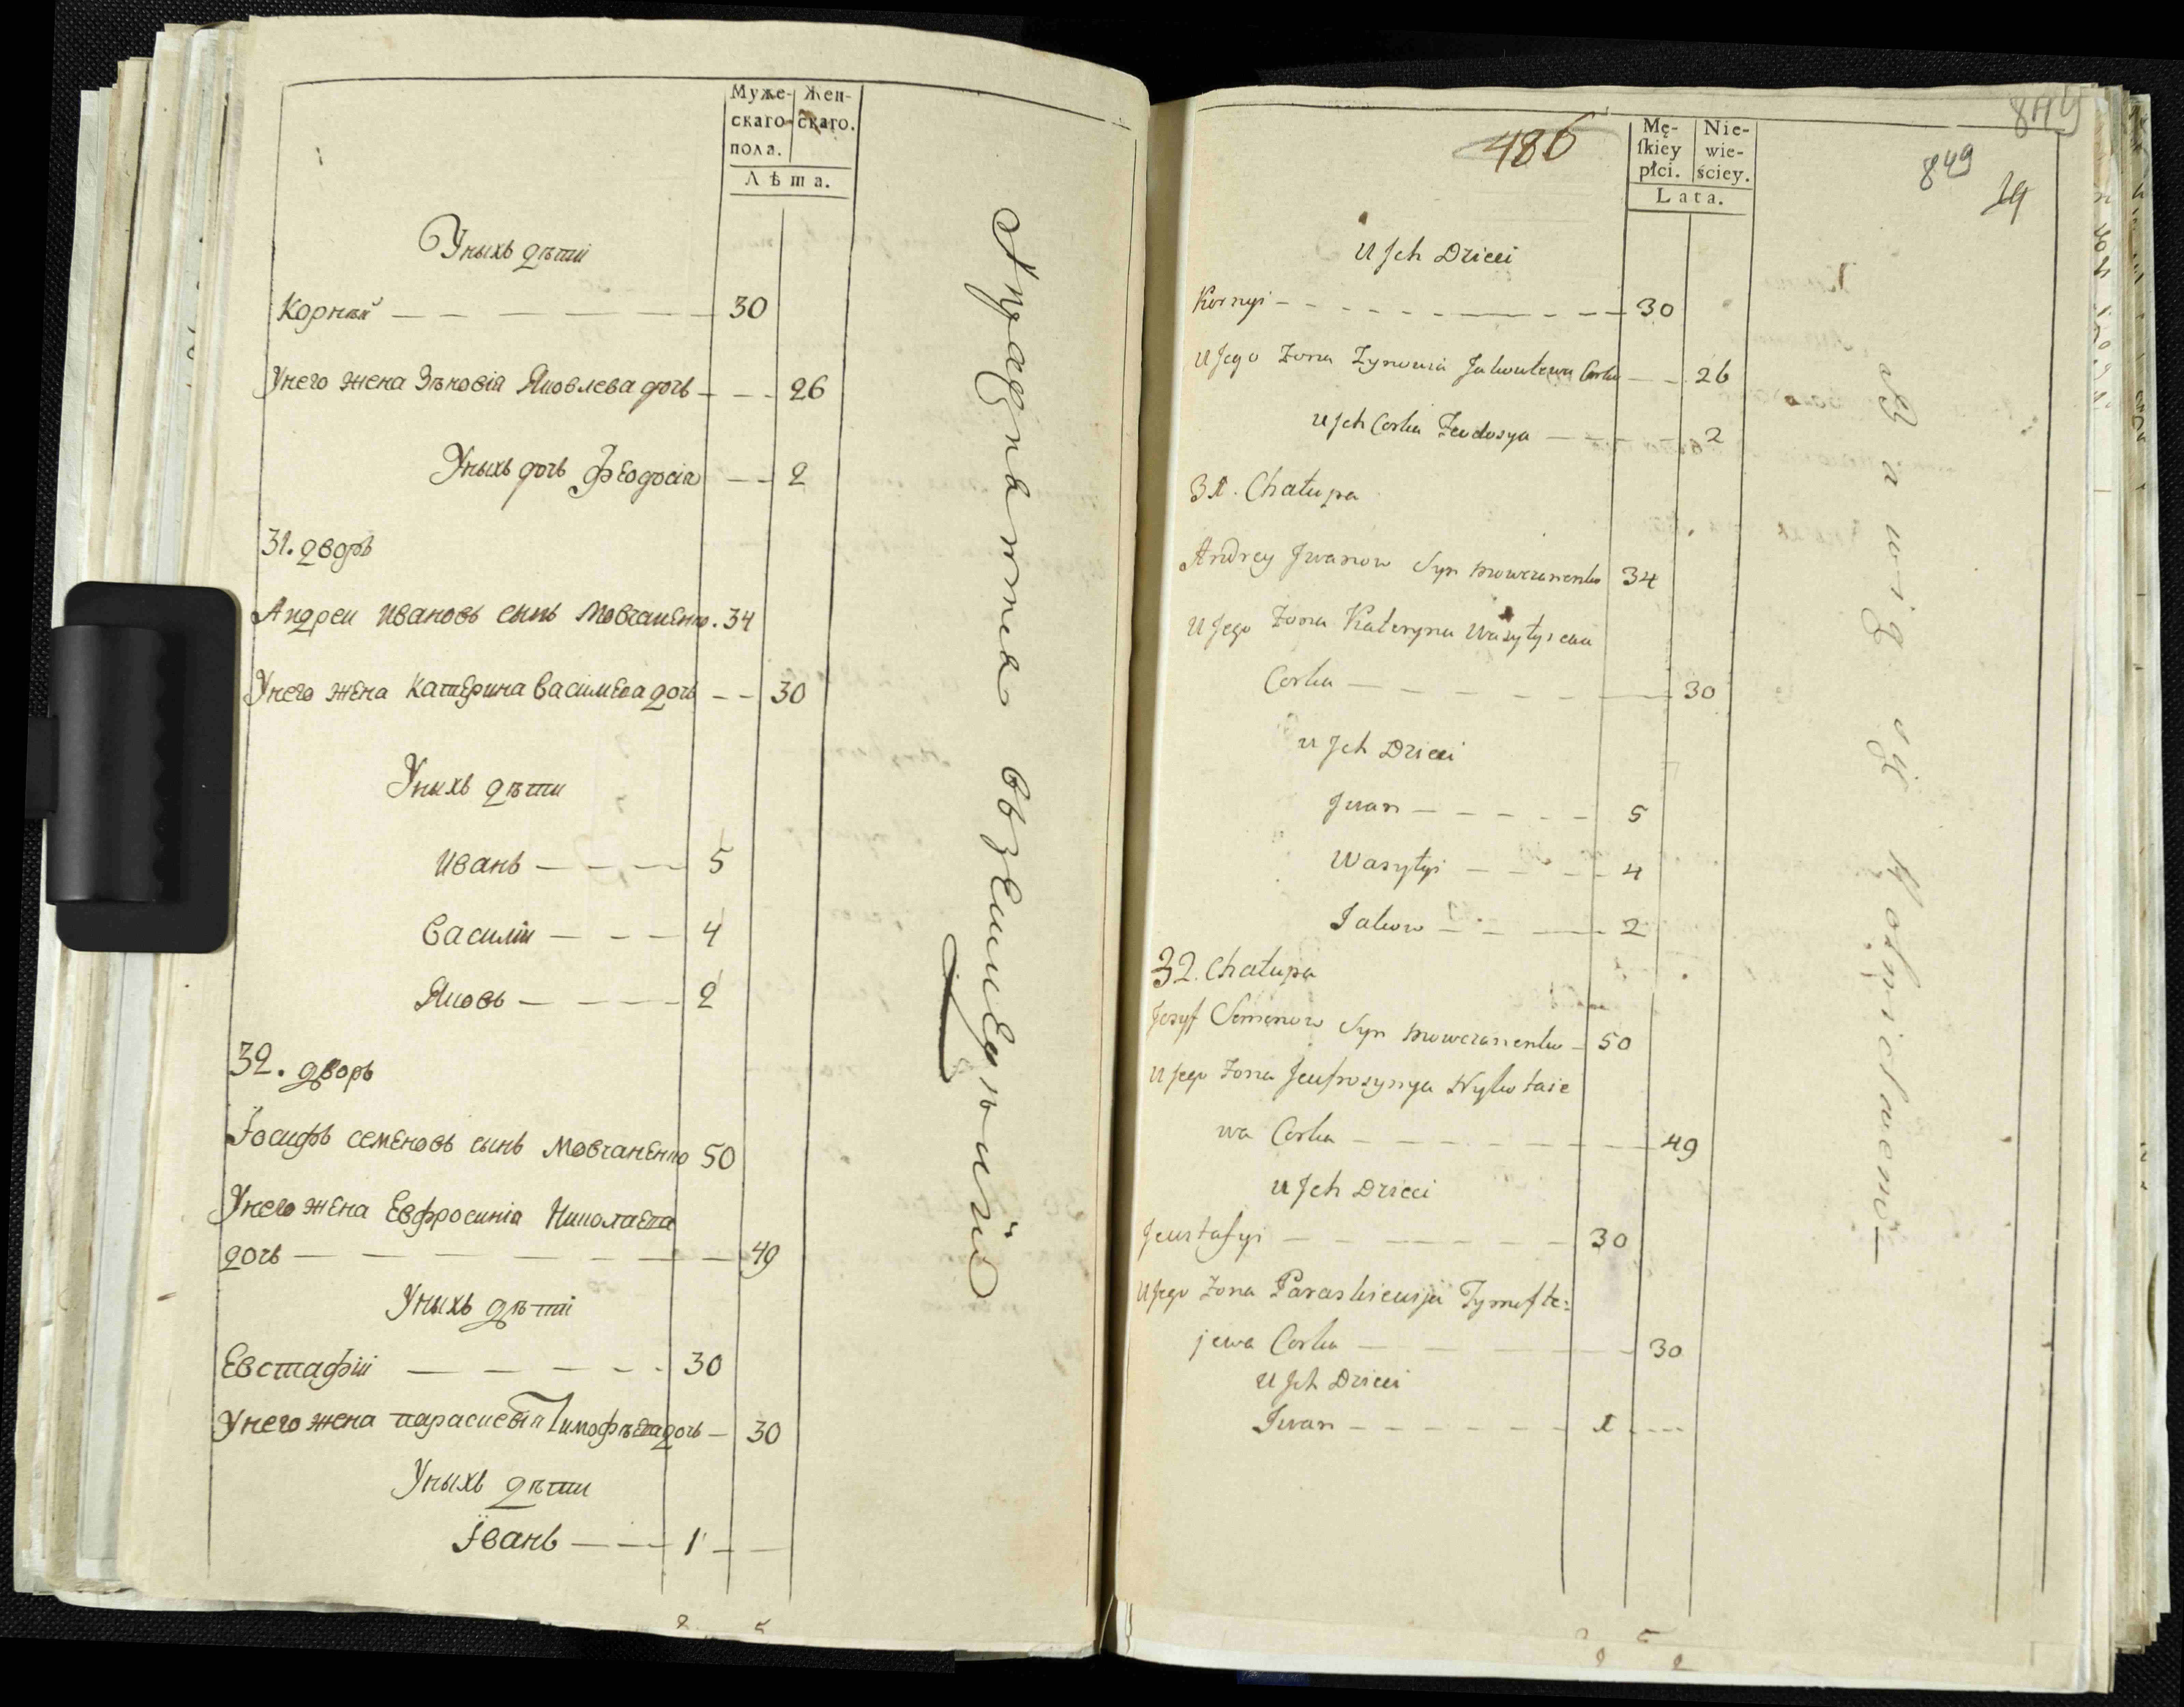 Муже- Жен-
скаго скаго.
пола.
Лѣта.
Уныхъ дѣти
Корнѣй — 30
Унего жена Зѣновіа Яковлева дочь — 26
Уныхъ дочь Феодосіа — 2
31. дворъ
Андреи Ивановъ сынъ Мовчаненко. 34
Унего жена Катерина Василиева дочь — 30
Уныхъ дѣти
Иванъ — 5
Василіи — 4
Яковъ — 2
32. дворъ
Іосифъ Семеновъ сынъ Мовчаненко 50
Унего жена Евфросиніа Николаева
дочь — 49
Уныхъ дѣти
Евстафіи — 30
Унего жена Параскевіа Тимофѣева дочь — 30
Уныхъ дѣти
Іванъ — 1
486
849
849
Mę- Nie-
ſkiey wie-
płci. ściey.
Lata.
U Jch Dzieci
Kornyi — 30
U Jego Zona Zynowia Jakowlewa Corka — 26
U Jch Corka Feodosya — 2
31. Chałupa
Andrey Jwanow Syn Mowczanenko 34
U Jego Zona Kateryna Wasylyiewa
Corka — 30
U Jch Dzieci
Jwan — 5
Wasyłyi — 4
Jakow — 2
32. Chałupa
Jozyf Semenow Syn Mowczanenko — 50
U Jego Zona Jeufrosynya Nykołaie
wa Corka — 49
U Jch Dzieci
Jeustafyi — 30
U Jego Zona Paraskiewija Tymofte:
jewa Corka — 30
U Jch Dzieci
Jwan — 1